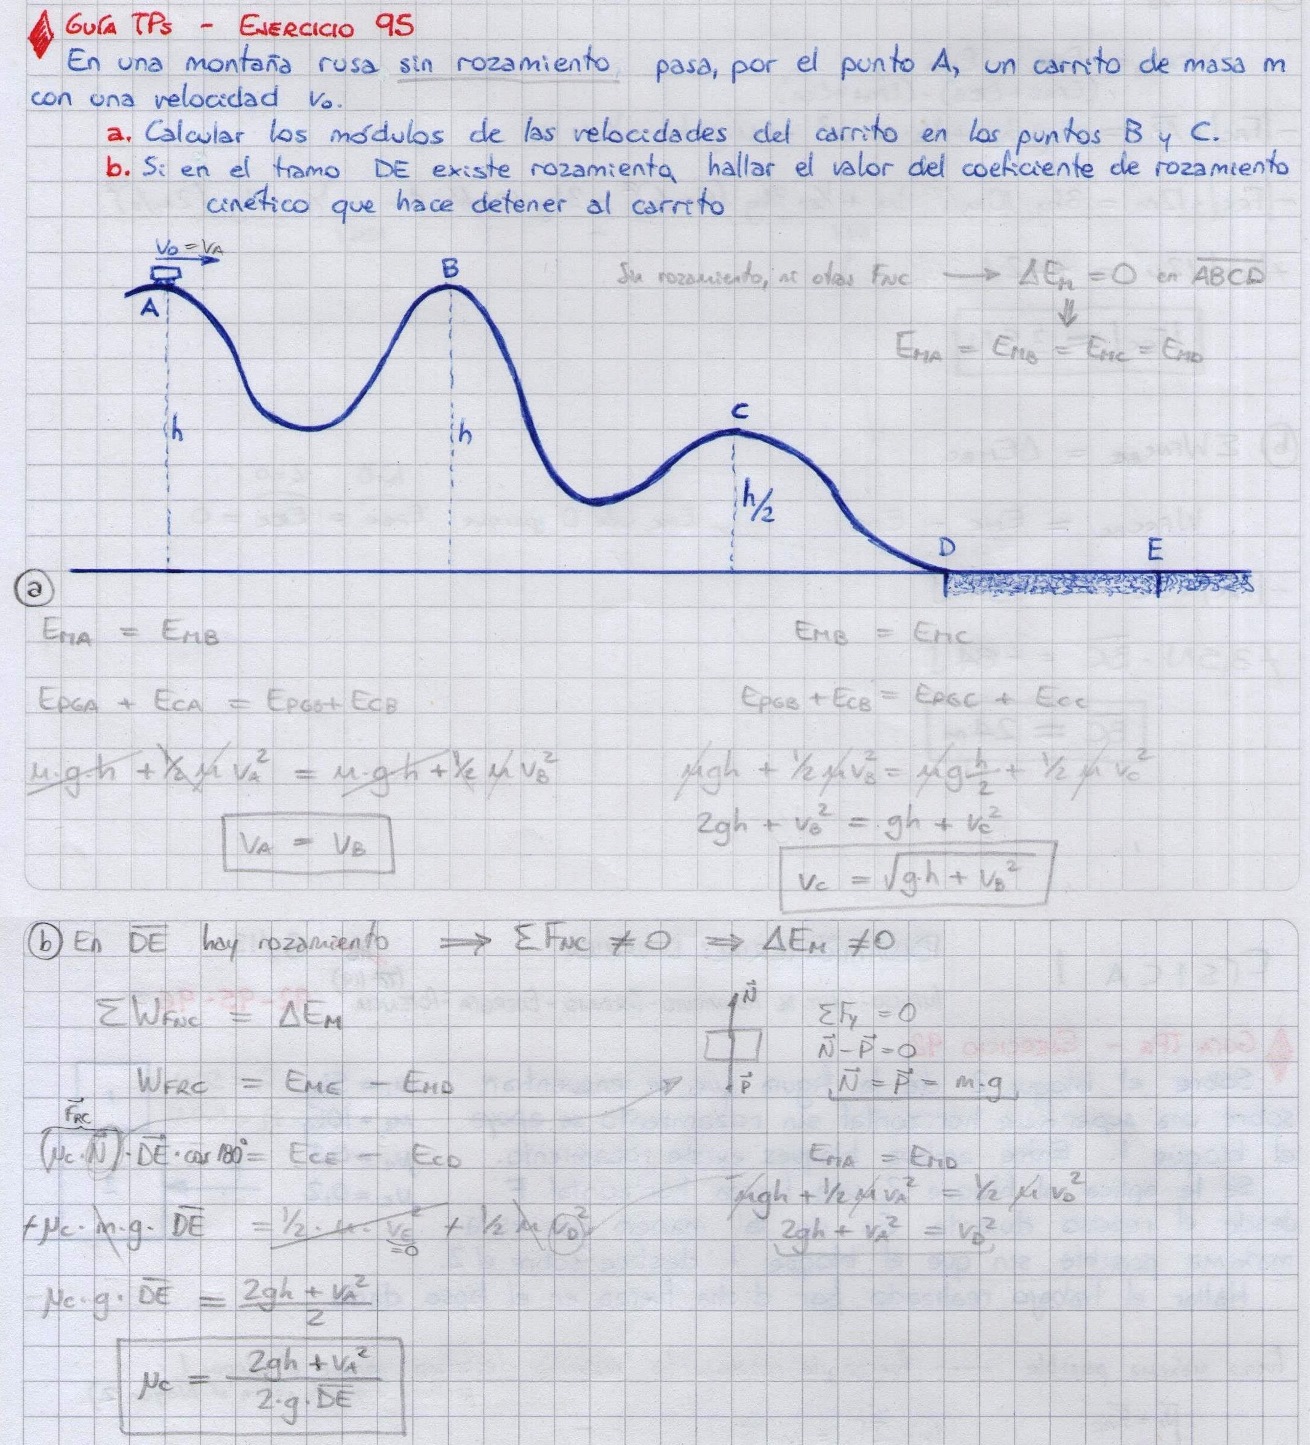 GUÍA TPs - EJERCICIO 95
En una montaña rusa sin rozamiento, pasa, por el punto A, un carrito de masa m
con una velocidad v₀.
a. Calcular los módulos de las velocidades del carrito en los puntos B y C.
b. Si en el tramo DE existe rozamiento, hallar el valor del coeficiente de rozamiento
cinético que hace detener al carrito
V₀ = VA
A
B
C
D
E
h
h
h/2
Sin rozamiento, ni otras FNC → ΔEM = 0 en ABCD
⇓
EMA = EMB = EMC = EMD
a
EMA = EMB
EPGA + ECA = EPGB + ECB
m·g·h + 1/2 m vA² = m·g·h + 1/2 m vB²
VA = VB
EMB = EMC
EPGB + ECB = EPGC + ECC
mgh + 1/2 m vB² = mg h/2 + 1/2 m vC²
2gh + vB² = gh + vC²
vC = √g·h + vB²
b En DE hay rozamiento ⇒ ΣFNC ≠ 0 ⇒ ΔEM ≠ 0
ΣWFNC = ΔEM
WFRC = EME - EMD
FRC
(μc·N)·DE·cos 180° = ECE - ECD
+μc·m·g·DE = 1/2·m·vE² + 1/2 m vD²
=0
μc·g·DE = 2gh + vA² / 2
μc = 2gh + vA² / 2·g·DE
N
P
ΣFy = 0
N - P = 0
N = P = m·g
EMA = EMD
mgh + 1/2 m vA² = 1/2 m vD²
2gh + vA² = vD²